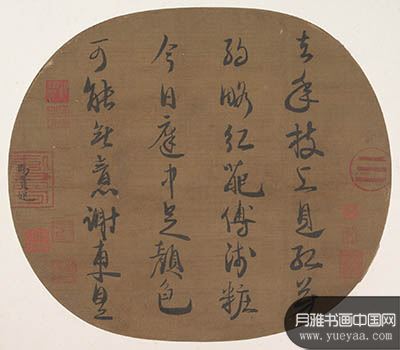 去年枝上見紅芳
約略紅葩傅淺粧
今日庭中足顏色
可能無意謝東皇
月雅书画中国网
www.yueyaa.com